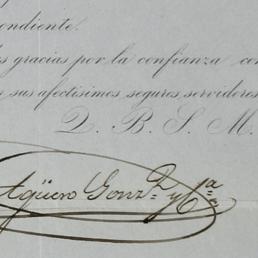 ondiente.
s gracias por la confianza con
e sus afectísimos seguros servidores
Q. B. S. M.
Agüero Gonz.z y C.ia